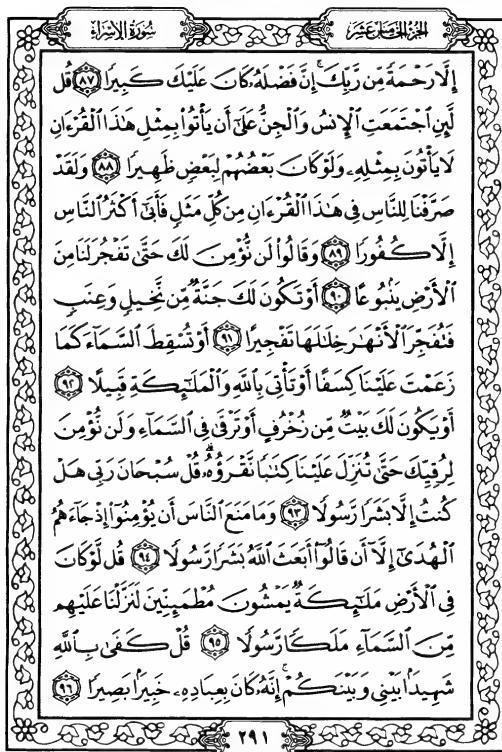 سُورَةُ الإِسْرَاءِ
الجُزْءُ الخَامِسَ عَشَرَ
إِلَّا رَحْمَةً مِّن رَّبِّكَ ۚ إِنَّ فَضْلَهُۥ كَانَ عَلَيْكَ كَبِيرًا ﴿٨٧﴾ قُل
لَّئِنِ ٱجْتَمَعَتِ ٱلْإِنسُ وَٱلْجِنُّ عَلَىٰٓ أَن يَأْتُوا۟ بِمِثْلِ هَٰذَا ٱلْقُرْءَانِ
لَا يَأْتُونَ بِمِثْلِهِۦ وَلَوْ كَانَ بَعْضُهُمْ لِبَعْضٍ ظَهِيرًا ﴿٨٨﴾ وَلَقَدْ
صَرَّفْنَا لِلنَّاسِ فِى هَٰذَا ٱلْقُرْءَانِ مِن كُلِّ مَثَلٍ فَأَبَىٰٓ أَكْثَرُ ٱلنَّاسِ
إِلَّا كُفُورًا ﴿٨٩﴾ وَقَالُوا۟ لَن نُّؤْمِنَ لَكَ حَتَّىٰ تَفْجُرَ لَنَا مِنَ
ٱلْأَرْضِ يَنۢبُوعًا ﴿٩٠﴾ أَوْ تَكُونَ لَكَ جَنَّةٌ مِّن نَّخِيلٍ وَعِنَبٍ
فَتُفَجِّرَ ٱلْأَنْهَٰرَ خِلَٰلَهَا تَفْجِيرًا ﴿٩١﴾ أَوْ تُسْقِطَ ٱلسَّمَآءَ كَمَا
زَعَمْتَ عَلَيْنَا كِسَفًا أَوْ تَأْتِىَ بِٱللَّهِ وَٱلْمَلَٰٓئِكَةِ قَبِيلًا ﴿٩٢﴾
أَوْ يَكُونَ لَكَ بَيْتٌ مِّن زُخْرُفٍ أَوْ تَرْقَىٰ فِى ٱلسَّمَآءِ وَلَن نُّؤْمِنَ
لِرُقِيِّكَ حَتَّىٰ تُنَزِّلَ عَلَيْنَا كِتَٰبًا نَّقْرَؤُهُۥ ۗ قُلْ سُبْحَانَ رَبِّى هَلْ
كُنتُ إِلَّا بَشَرًا رَّسُولًا ﴿٩٣﴾ وَمَا مَنَعَ ٱلنَّاسَ أَن يُؤْمِنُوٓا۟ إِذْ جَآءَهُمُ
ٱلْهُدَىٰٓ إِلَّآ أَن قَالُوٓا۟ أَبَعَثَ ٱللَّهُ بَشَرًا رَّسُولًا ﴿٩٤﴾ قُل لَّوْ كَانَ
فِى ٱلْأَرْضِ مَلَٰٓئِكَةٌ يَمْشُونَ مُطْمَئِنِّينَ لَنَزَّلْنَا عَلَيْهِم
مِّنَ ٱلسَّمَآءِ مَلَكًا رَّسُولًا ﴿٩٥﴾ قُلْ كَفَىٰ بِٱللَّهِ
شَهِيدًۢا بَيْنِى وَبَيْنَكُمْ ۚ إِنَّهُۥ كَانَ بِعِبَادِهِۦ خَبِيرًۢا بَصِيرًا ﴿٩٦﴾
٢٩١